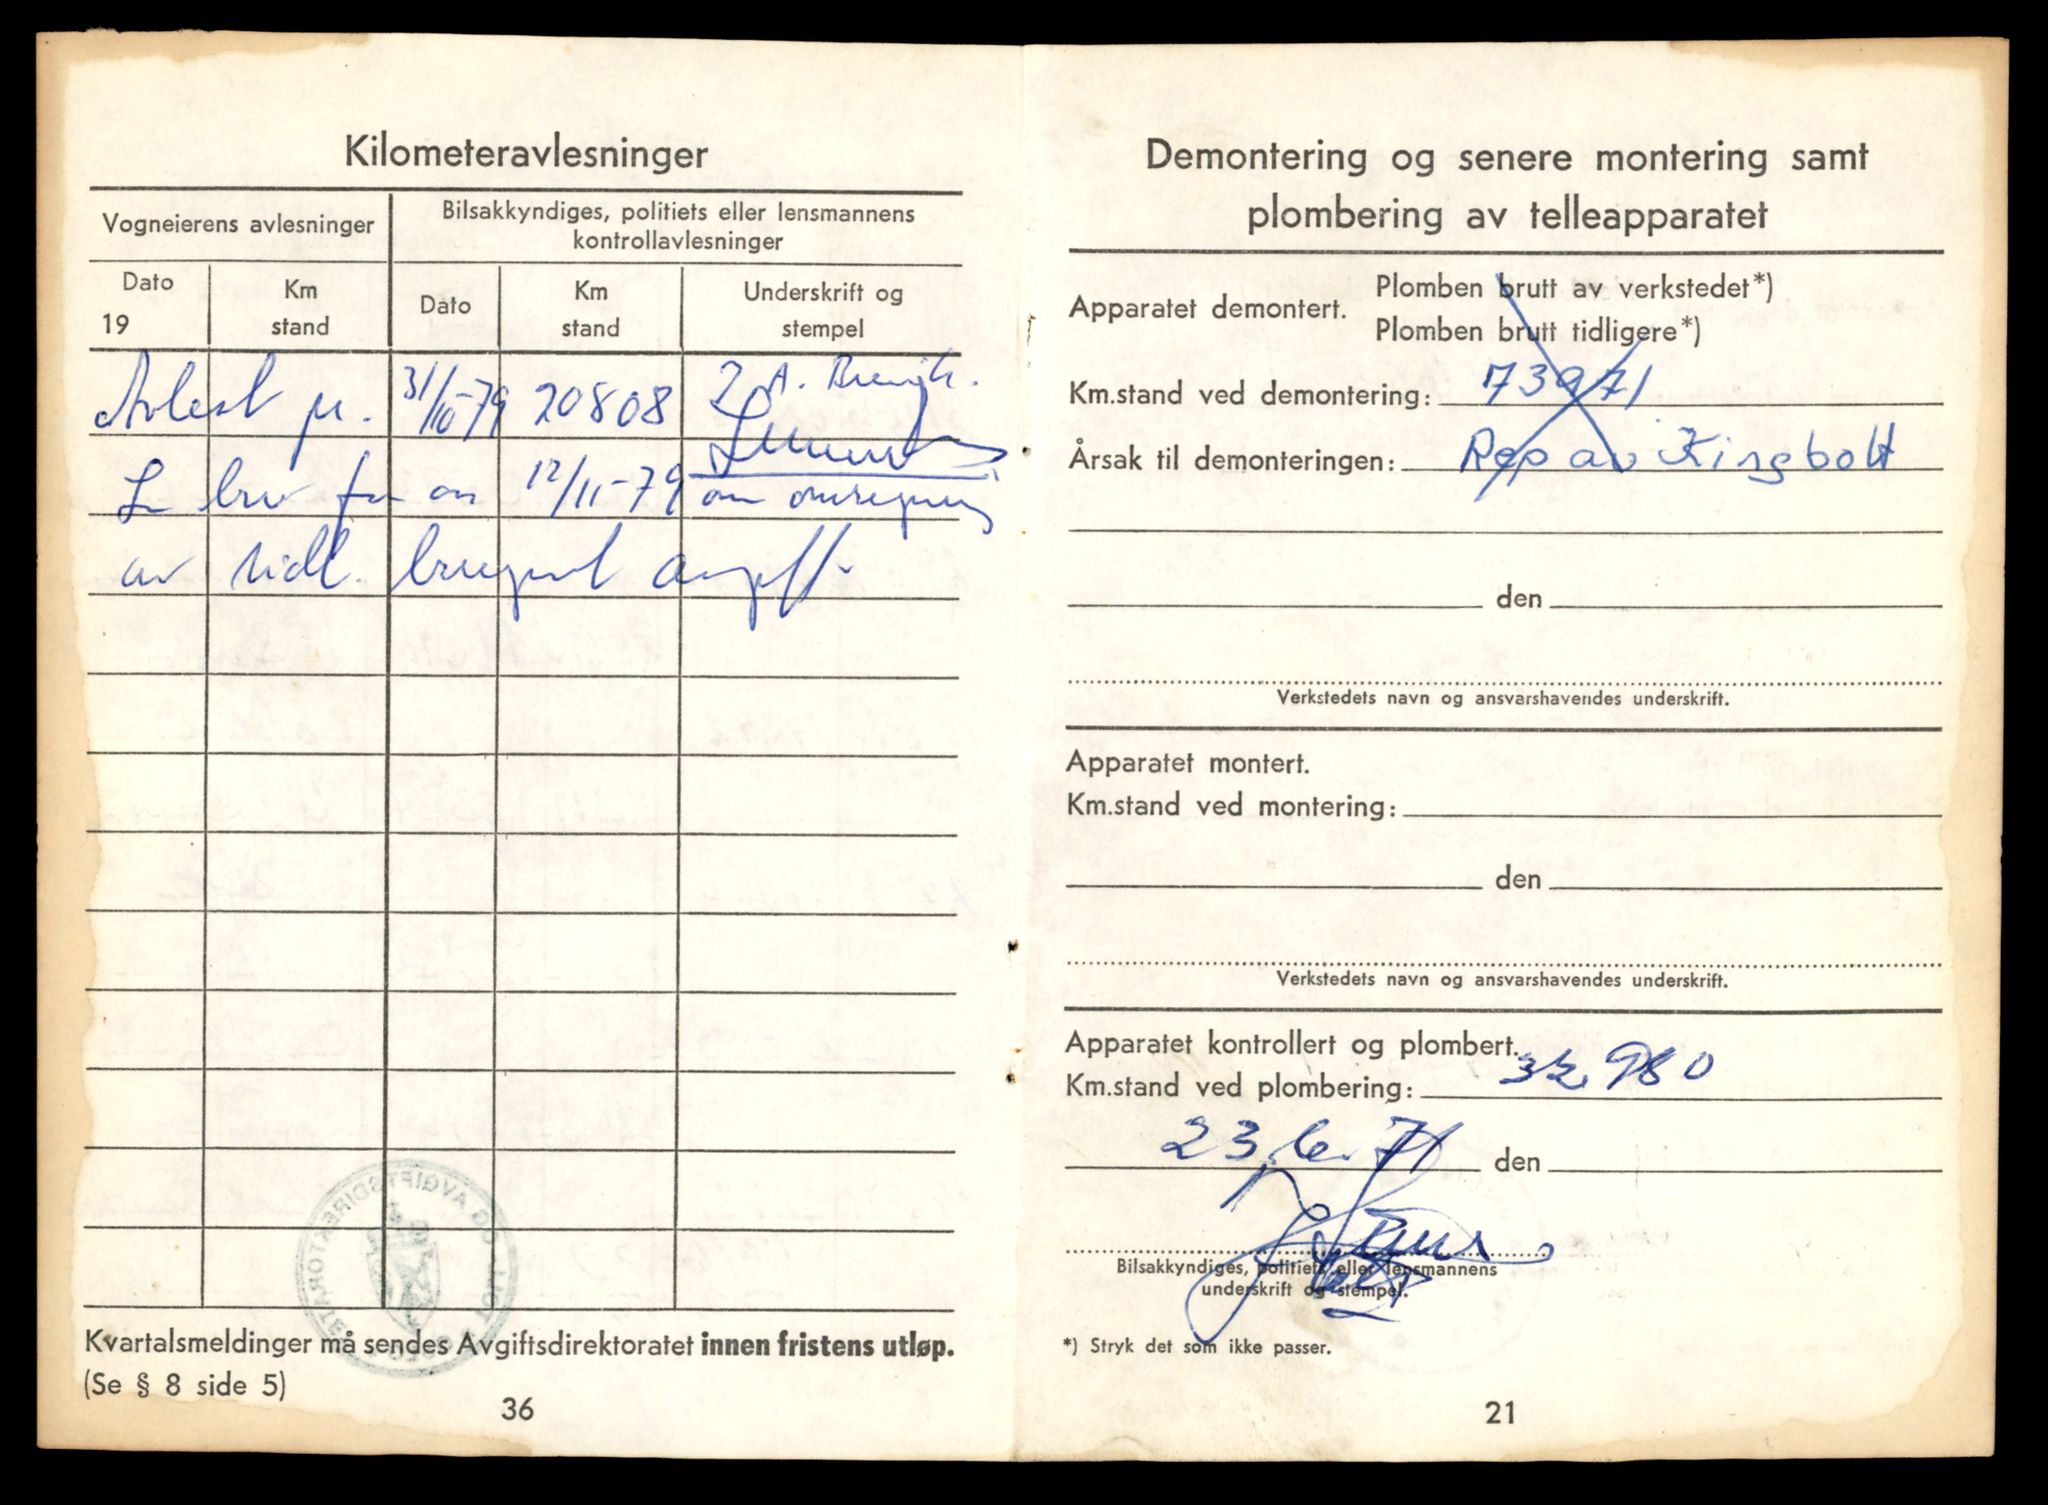 Kilometeravlesninger
Vogneierens avlesninger
Bilsakkyndiges, politiets eller lensmannens
kontrollavlesninger
Dato
19
Km
stand
Dato
Km
stand
Underskrift og
stempel
Avlest pr. 31/10-79 20808
brev fra oss 12/11-79 om omregning
av tidl. beregnet avgift.
Kvartalsmeldinger må sendes Avgiftsdirektoratet innen fristens utløp.
(Se § 8 side 5)
36
Demontering og senere montering samt
plombering av telleapparatet
Apparatet demontert.
Plomben brutt av verkstedet*)
Plomben brutt tidligere*)
Km.stand ved demontering: 73971
Årsak til demonteringen: Rep av Kingbolt
den
Verkstedets navn og ansvarshavendes underskrift.
Apparatet montert.
Km.stand ved montering:
den
Verkstedets navn og ansvarshavendes underskrift.
Apparatet kontrollert og plombert.
Km.stand ved plombering: 32980
23.6.71 den
Bilsakkyndiges, politiets eller lensmannens
underskrift og stempel.
*) Stryk det som ikke passer.
21